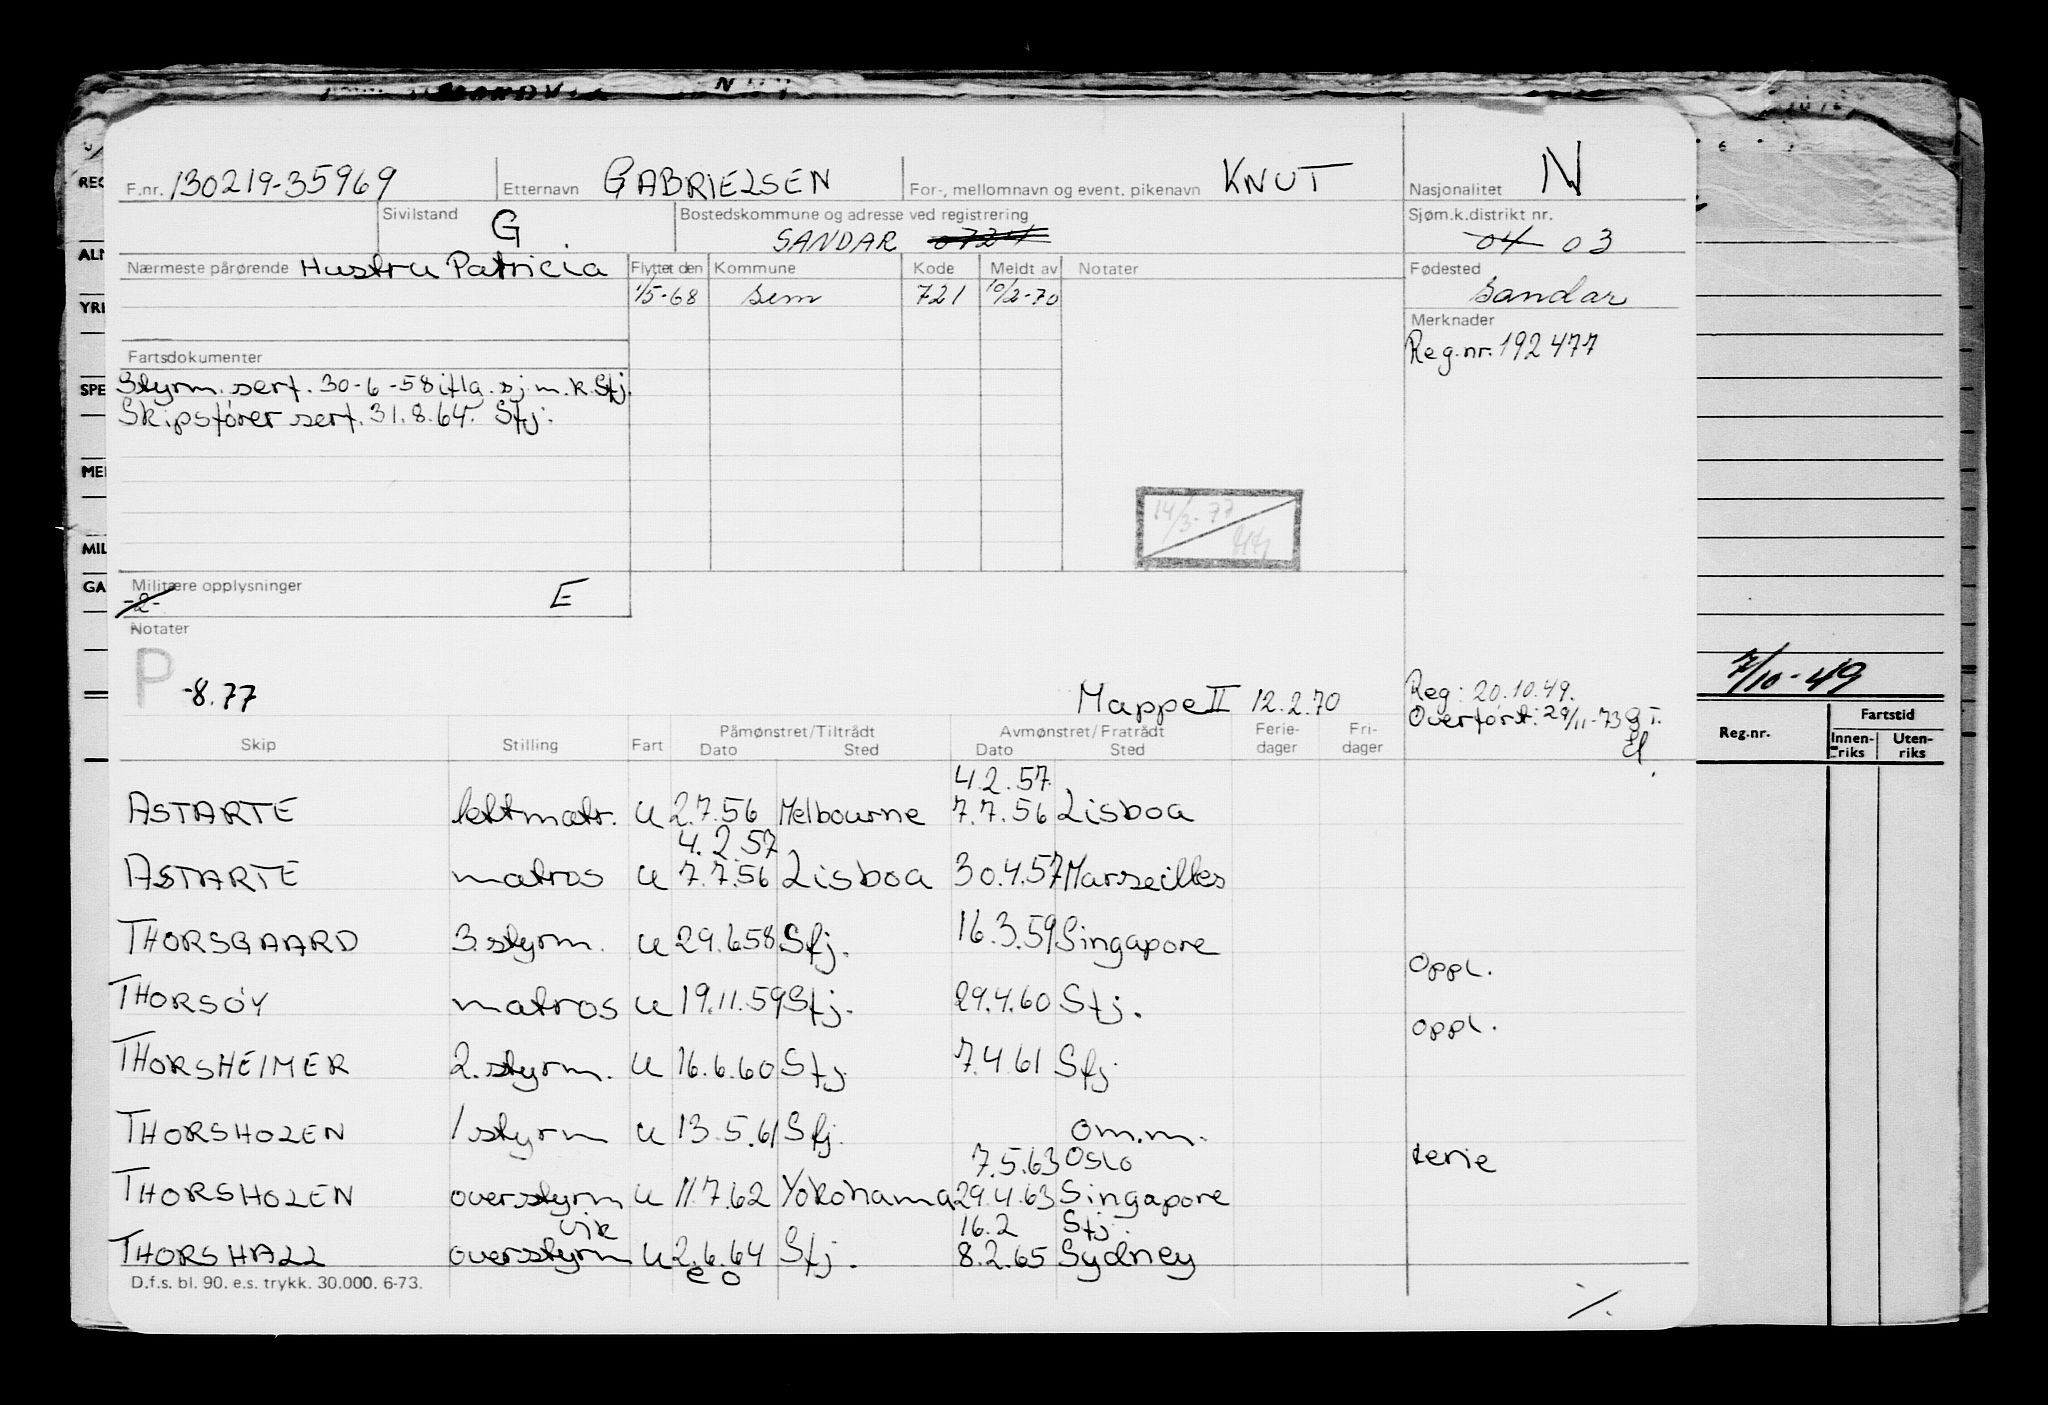 F.nr. 130219-35969 Etternavn GABRIELSEN For-, mellomnavn og event. pikenavn KNUT Nasjonalitet N
Sivilstand G Bostedskommune og adresse ved registrering SANDAR 0724 Sjøm.k.distrikt nr. 04 03
Nærmeste pårørende Hustru Patricia Flyttet den Kommune Kode Meldt av Notater Fødested Sandar
1/5-68 Sem 721 10/2-70
Merknader
Reg.nr. 192477
Fartsdokumenter
Styrm. sert. 30-6-58 iflg. sj.m.k. Sfj.
Skipsfører sert. 31.8.64. Sfj.
14/3-77
Militære opplysninger E
-2-
Notater
P -8.77
Mappe II 12.2.70
Reg: 20.10.49.
Overført: 29/11-73 G.T.
El.
Skip Stilling Fart Påmønstret/Tiltrådt Dato Sted Avmønstret/Fratrådt Dato Sted Ferie-dager Fri-dager
4.2.57
ASTARTE lettmatr. u 2.7.56 Melbourne 7.7.56 Lisboa
4.2.57
ASTARTE matros u 7.7.56 Lisboa 30.4.57 Marseilles
THORSGAARD 3.styrm. u 29.6.58 Sfj. 16.3.59 Singapore
Oppl.
THORSØY matros u 19.11.59 Sfj. 29.4.60 Sfj.
oppl.
THORSHEIMER 2.styrm. u 16.6.60 Sfj 7.4.61 Sfj
THORSHOLEN 1 styrm u 13.5.61 Sfj. om.m.
7.5.63 Oslo ferie
THORSHOLEN overstyrm u 11.7.62 Yokohama 29.4.63 Singapore
vik 16.2 Sfj.
THORSHALL overstyrm u 2.6.64 Sfj. 8.2.65 Sydney
eo
D.f.s. bl. 90. e.s. trykk. 30.000. 6-73.
%.
REG
ALM
YRK
SPE
MER
MIL
GA
7/10-49
Reg.nr. Fartstid
Innen-riks Uten-riks